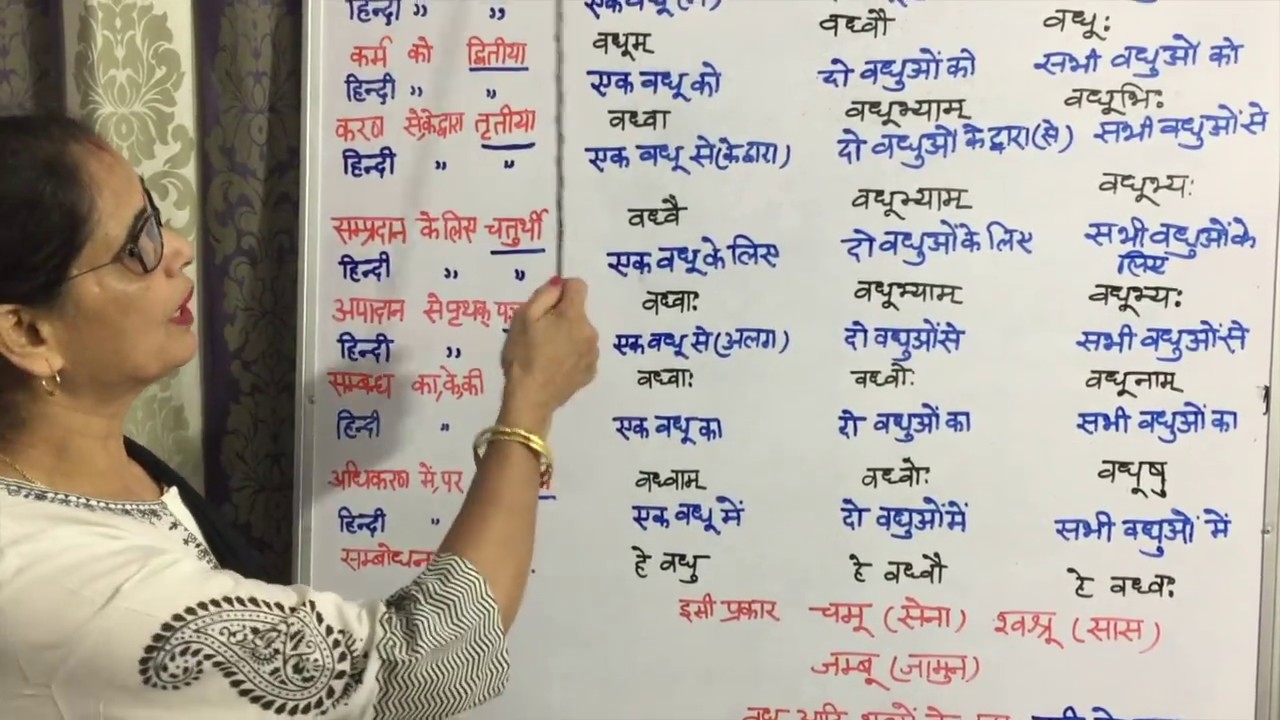 हिन्दी ,, ,, एक वधू (ने)
वध्वौ वधूः
कर्म को द्वितीया वधूम्
हिन्दी ,, ,, एक वधू को दो वधुओं को सभी वधुओं को
करण से,के द्वारा तृतीया वध्वा वधूभ्याम् वधूभिः
हिन्दी ,, ,, एक वधू से(के द्वारा) दो वधुओं के द्वारा(से) सभी वधुओं से
सम्प्रदान के लिए चतुर्थी वध्वै वधूभ्याम् वधूभ्यः
हिन्दी ,, ,, एक वधू के लिए दो वधुओं के लिए सभी वधुओं के
लिए
अपादान से पृथक् वध्वाः वधूभ्याम् वधूभ्यः
हिन्दी ,, एक वधू से (अलग) दो वधुओं से सभी वधुओं से
सम्बन्ध का,के,की वध्वाः वध्वोः वधूनाम्
हिन्दी ,, एक वधू का दो वधुओं का सभी वधुओं का
अधिकरण में,पर वध्वाम् वध्वोः वधूषु
हिन्दी ,, एक वधू में दो वधुओं में सभी वधुओं में
सम्बोधन हे वधु हे वध्वौ हे वध्वः
इसी प्रकार चमू (सेना) श्वश्रू (सास)
जम्बू (जामुन)